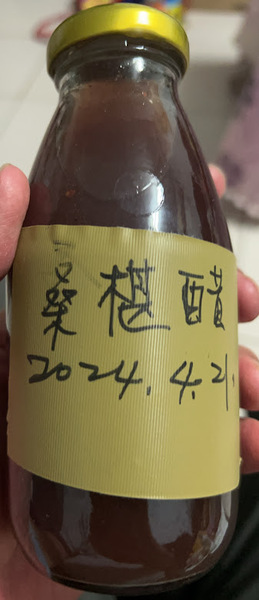 桑椹醋
2024.4.21.